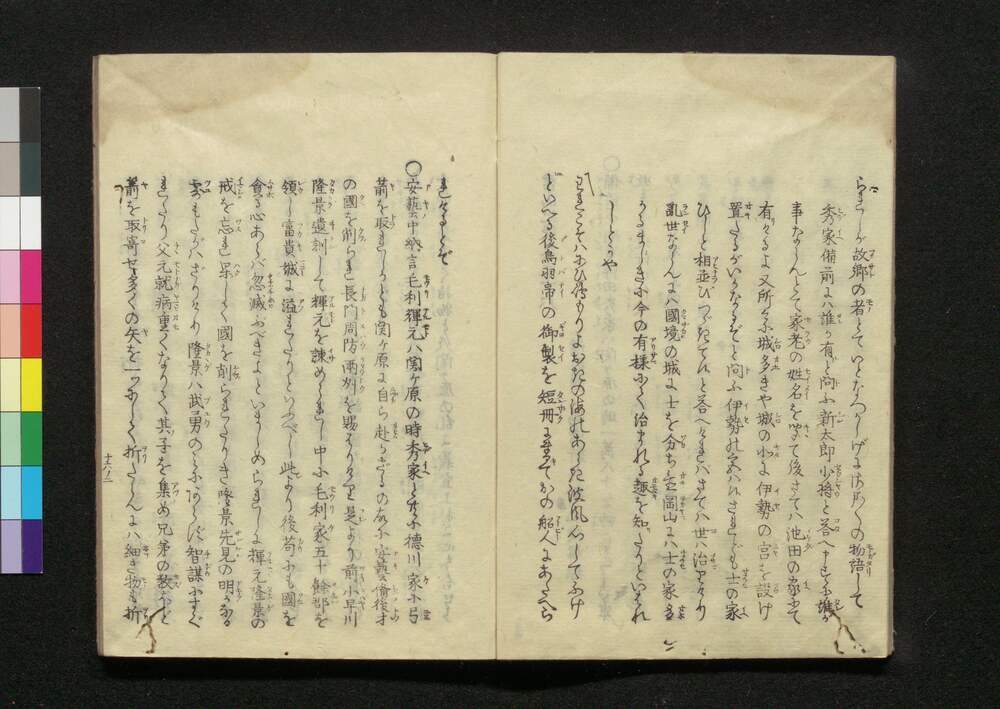 られしが故郷の者とていとなつかしげにはかくの物語して
秀家備前には誰か有ぞと問ふ新太郎少将と答へ申すに誰が
事ならんとて家老の姓名を聞て後さては池田の家にて
有けるよ又所々に城多きや城の北に伊勢の宮を設け
置たるがいかなるぞと問ふ伊勢の宮ハ候されども士の家
ひしと相並びつゞたてんと答へければさては世ハ治りけり
乱世ならんにハ國境の城に士を分ち岡山にハ士の家多
かるまじきに今の有様にて治まれる趣を知たりといはれ
しとかや
われこそハにひ島もりよおきの海のあらき波風心してふけ
といへる後鳥羽帝の御製を短冊に書てかの船人にあたへら
れけるとぞ
○安藝中納言毛利輝元ハ関ヶ原の時秀家と共に徳川家に弓
箭を取れしかども関ヶ原に自ら赴かざるの故に安藝備後等
の國を削られ長門周防両州を賜はりけり是より前小早川
隆景遺訓して輝元を諫めし中に毛利家五十餘郡を
領し富貴城に溢れたりといふべし此より後苟にも國を
貪る心あらバ忽滅ぶべきよといましめられしに輝元隆景の
戒を忘れ果して國を削られたりき隆景先見の明かなる
事もたがハざりけり隆景ハ武勇のみにあらず智謀にすぐ
れたり父元就病重くなりて其子を集め兄弟の数ほど
箭を取寄せ多くの矢を一ツにして折たらんにハ細き物も折